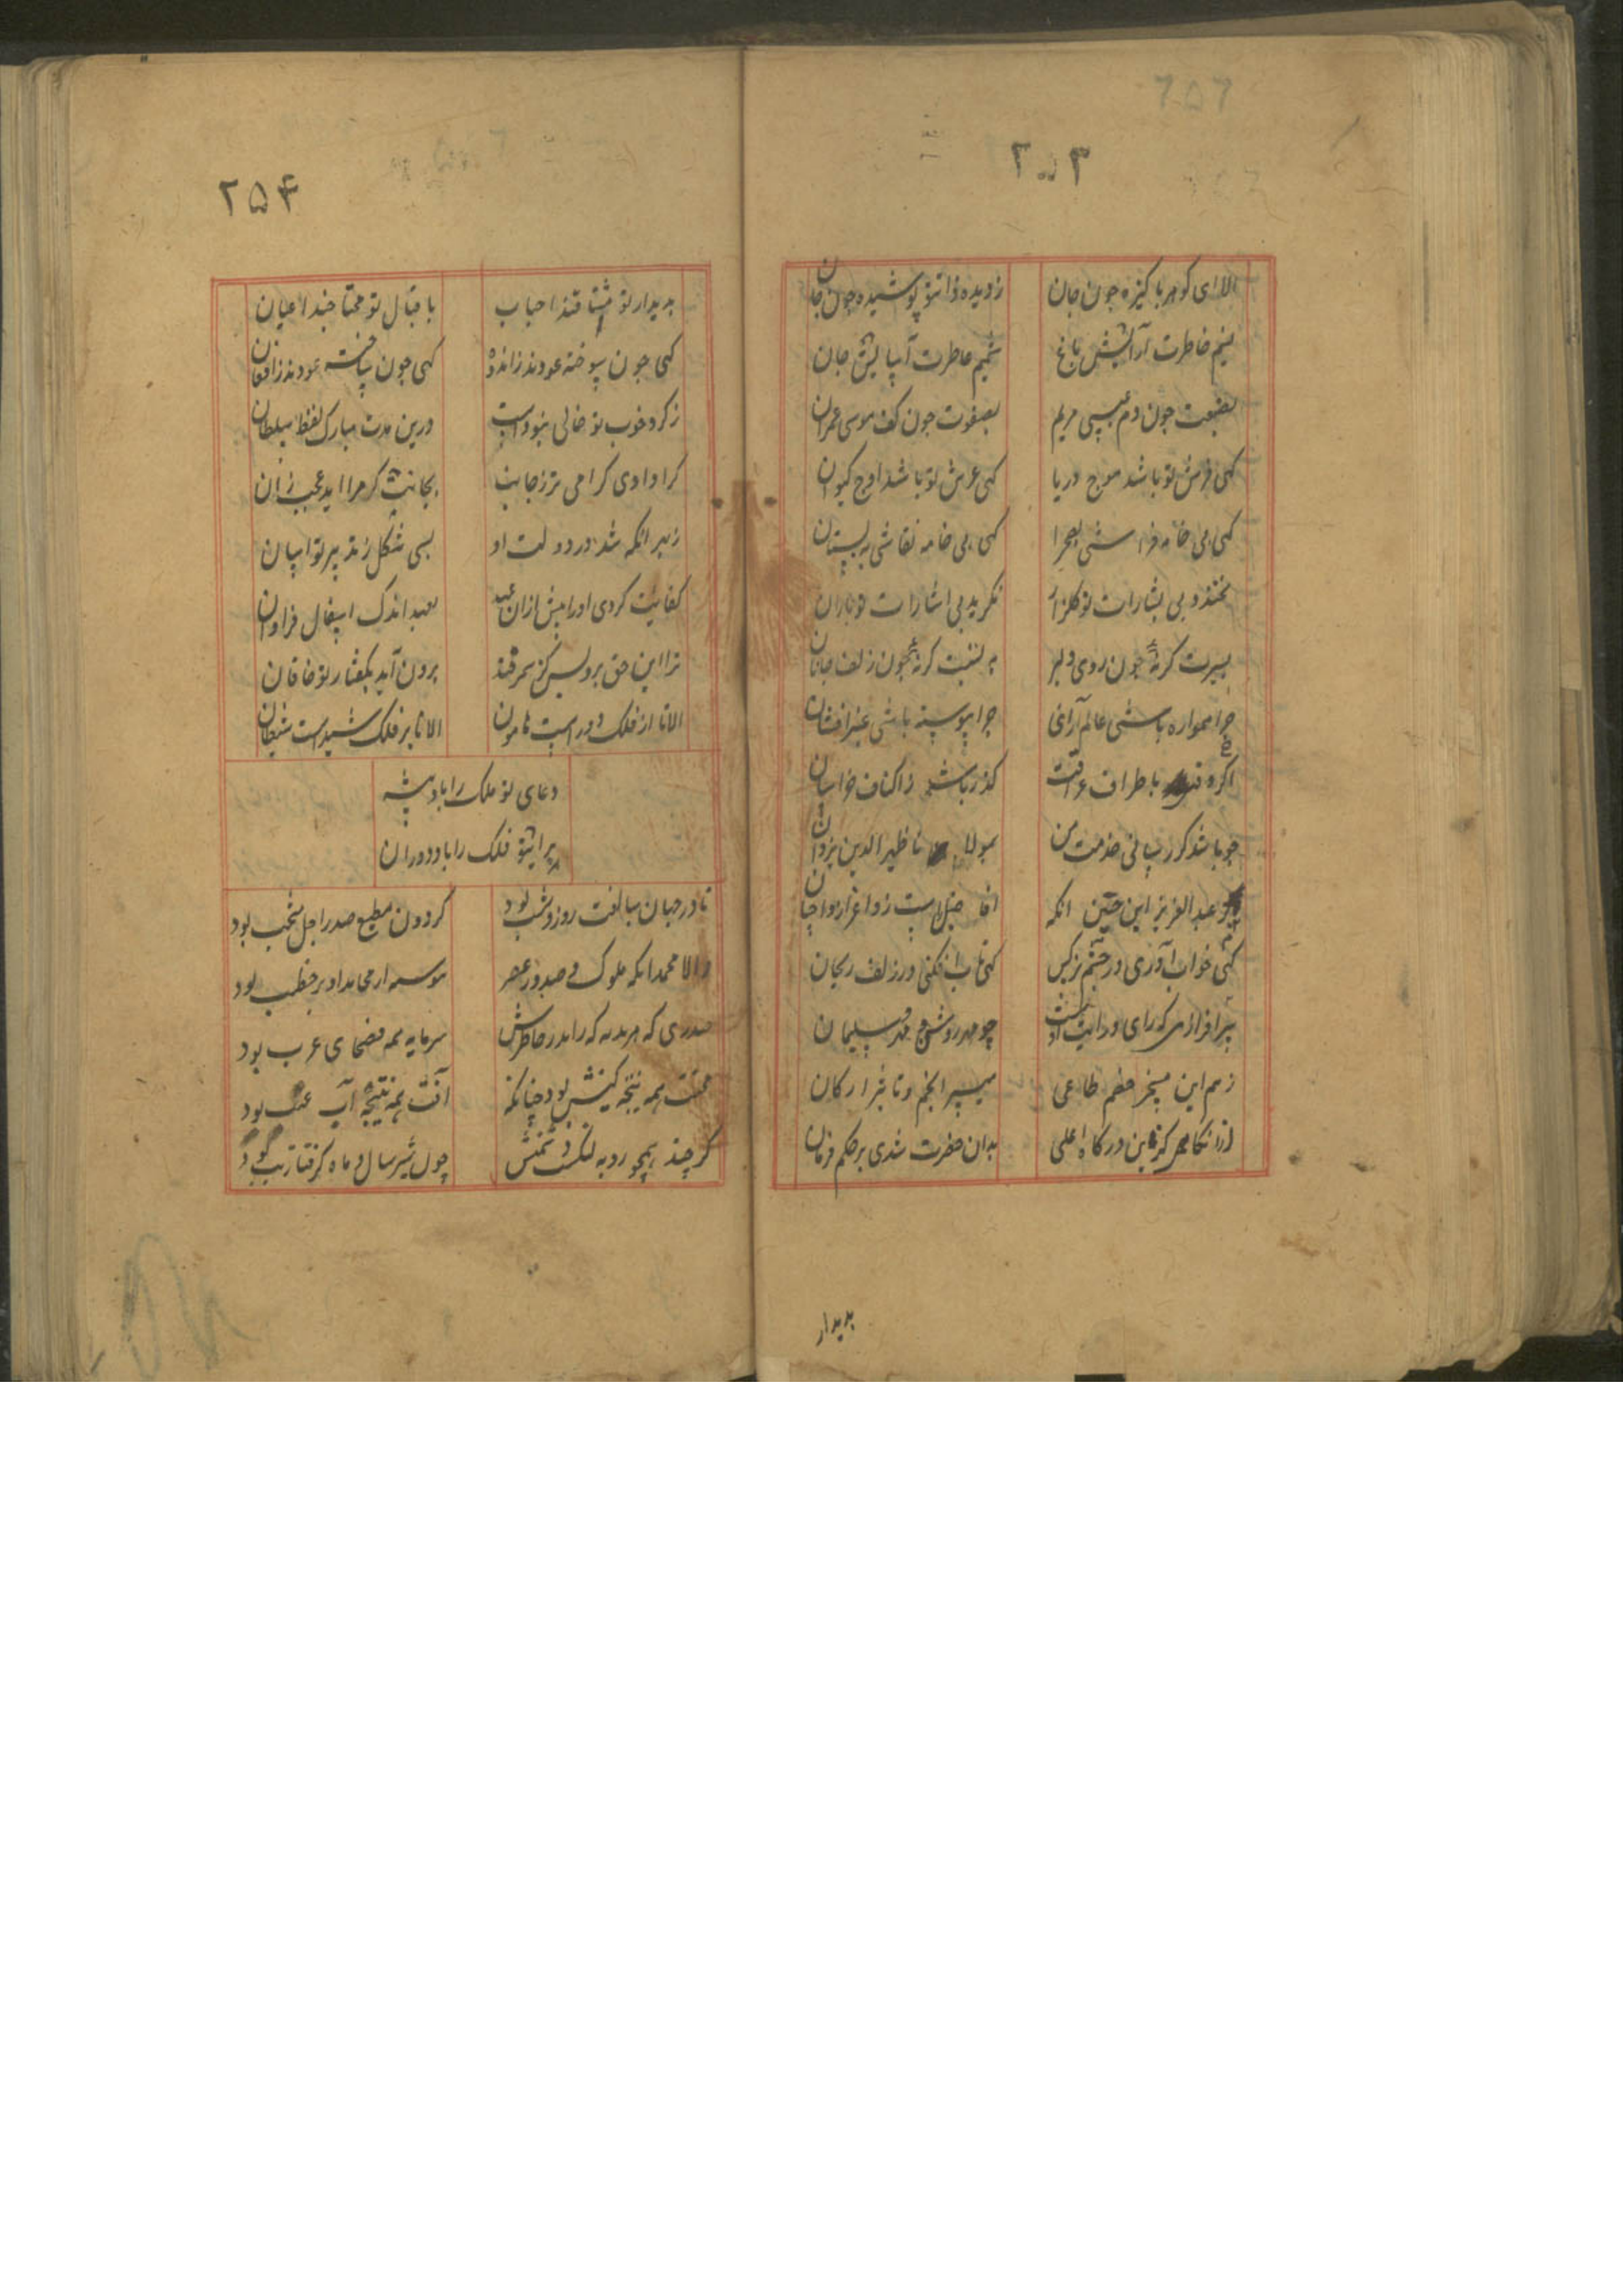 ۲۵۳
الا ای کوهر پاکیزه چون جان ز دیده ذات تو پوشیده چون جان
نسیم خاطرت آرایش باغ شمیم عاطرت آسایش جان
بصنعت چون دم عیسی مریم بصفوت چون کف موسی عمران
کهی فرش تو باشد موج دریا کهی عرش تو باشد اوج کیوان
کهی بی خامه فراشی بصحرا کهی بی خامه نقاشی به بستان
نخندد بی بشارات تو کلزار نکرید بی اشارات تو باران
بسیرت کر نهٔ چون روی دلبر به نسبت کر نهٔ چون زلف جانان
چرا همواره باشی عالم آرای چرا پیوسته باشی عنبر افشان
اکر وقتی باطراف عراقت کذر باشد ز اکناف خراسان
چو باشد کر رسانی خدمت من بمولانا ظهیر الدین یزدان
عبد العزیز ابن حسین انکه
کهی خواب آوری در چشم نرکس کهی تاب افکنی در زلف ریحان
سرافرازی که رای و رایت اوست چو مهر روشن و مهر سلیمان
ز هم این مسخر حکم طاعی سپهر انجم و تاثیر ارکان
ازانکاهی کزین درکاه اعلی بدان حضرت شدی بر حکم فرمان
بدیدار
۲۵۴
بدیدار تو مشتاقند احباب باقبال تو محتاجند اعیان
کهی چون سوخته عودند ز اندوه کهی چون ساخته عودند ز افغان
ز کرد خوب تو خالی نبوداست درین مدت مبارک لفظ سلطان
کرا دادی کرامی تر ز جانت بجانت کر مرا اید عجب زان
ز بهر انکه شد در دولت او بسی مشکل ز تدبیر تو اسان
کفایت کردی او را پیش ازان عهد بعهد اندک اشغال فراوان
ترا این حق برو بس کز سمرقند برون آید بکفتار تو خاقان
الا تا از فلک دور است هامون الا تا بر فلک شید است شیطان
دعای تو ملک را باد پیشه
برای تو فلک را باد دوران
تا در جهان مسافت روز و شب بود کردون مطیع صدر اجل منتخب بود
والا محمد انکه ملوک و صدور عصر
صدری که هر بدیهه که راید ز خاطرش سرمایه همه فصحای عرب بود
محنت همه نتیجه کینش بود چنانکه آفت همه نتیجه آب عنب بود
کر چند همچو روبه لنکست دشمنش چون شیر سال و ماه کرفتار تب بود